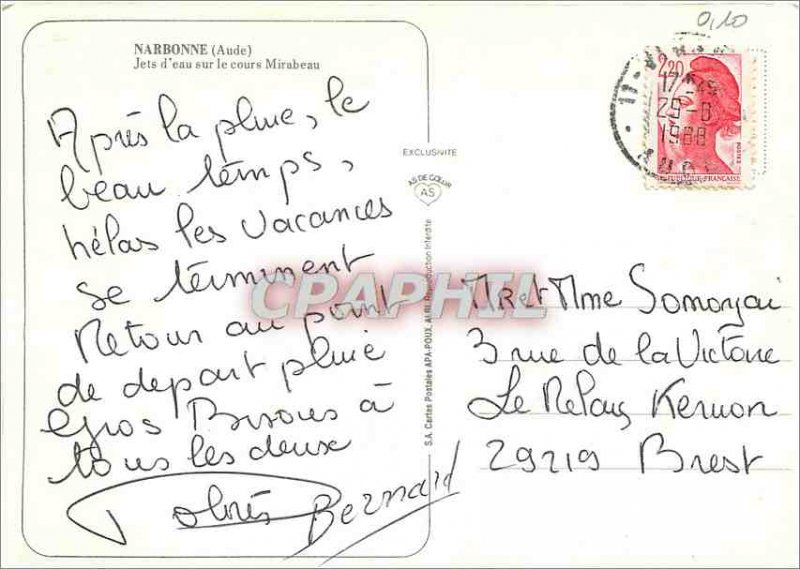 0,10
NARBONNE (Aude)
Jets d'eau sur le cours Mirabeau
Après la pluie, le
beau temps,
hélas les vacances
se terminent
Retour au point
de depart pluie
Gros Bisous à
tous les deux
Dolorès Bernard
EXCLUSIVITE
AS DE CŒUR
AS
S.A. Cartes Postales APA-POUX, ALBI, Reproduction Interdite
CPAPHIL
2,20
POSTES
REPUBLIQUE FRANÇAISE
17 H 45
1988
MR et Mme Somoyai
3 rue de la Victoire
Le Relais Kernon
29219 Brest